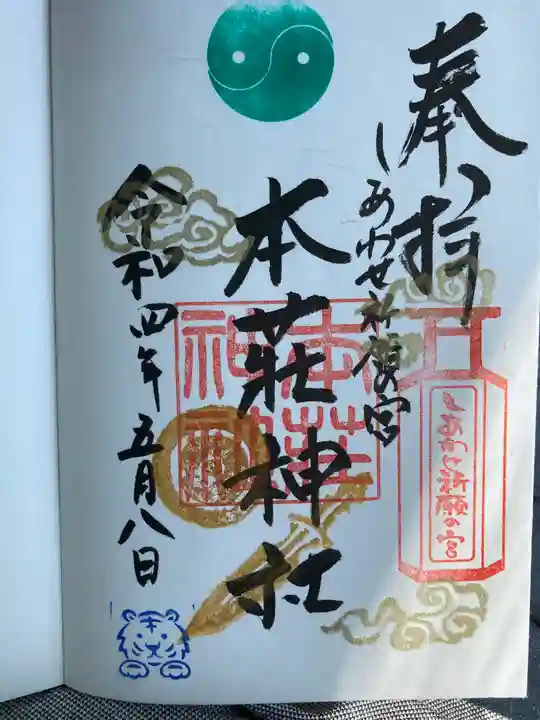 奉拝
しあわせ祈願宮
本荘神社
令和四年五月八日
本荘
神社
しあわせ祈願の宮